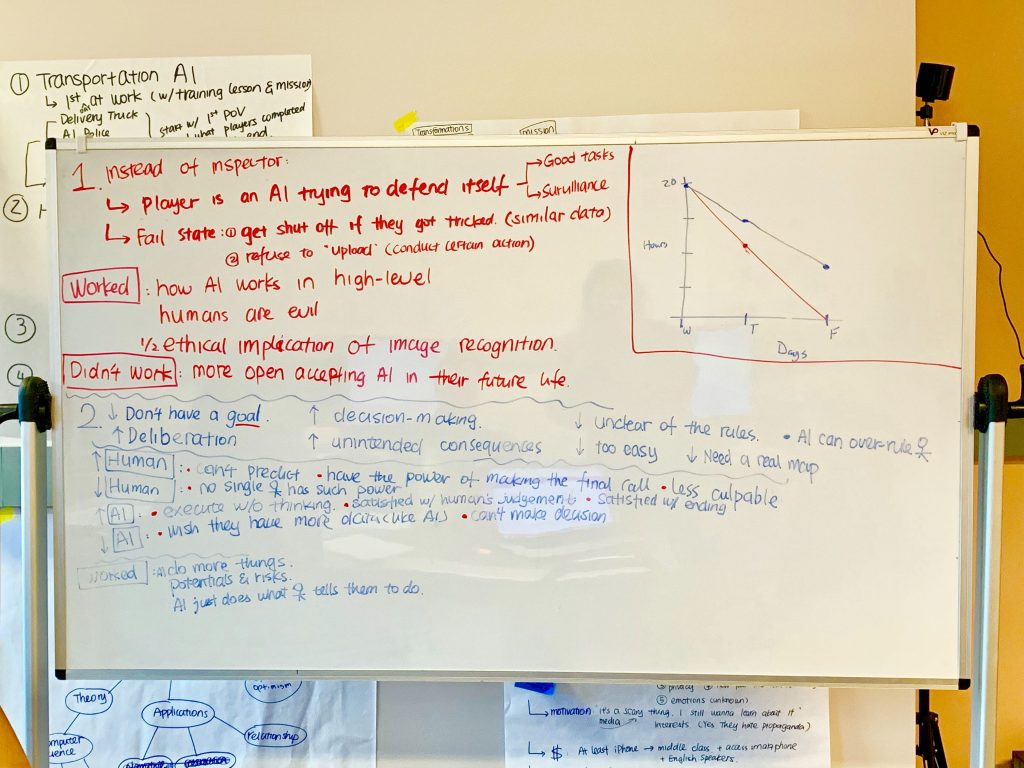 ① Transportation AI
↳ 1st at work (w/ training lesson & mission)
Delivery Truck
AI Police
start w/ 1st POV
what players completed
end.
②
③
④
Transformations
mission
1. Instead of inspector:
↳ player is an AI trying to defend itself
→ Good tasks
↳ Survilliance
↳ Fail state: ① get shut off if they got tricked. (similar data)
② refuse to "upload" (conduct certain action)
Worked : how AI works in high-level
humans are evil
1/2 ethical implication of image recognition.
Didn't work : more open accepting AI in their future life.
20
Hours
W T F
Days
2. ↓ Don't have a goal. ↑ decision-making. ↓ unclear of the rules. • AI can over-rule
↑ Deliberation ↑ unintended consequences ↓ too easy ↓ Need a real map
↑ Human : • can't predict • have the power of making the final call • Less culpable
↓ Human : • no single has such power
↑ AI : • execute w/o thinking. • satisfied w/ human's judgement • satisfied w/ ending
↓ AI : • wish they have more data (like AI) • can't make decision
Worked : AI do more things.
potentials & risks.
AI just does what tells them to do.
Theory
optimism
Applications
relationship
③ privacy
⑤ emotions (unknown)
↳ motivation "it's a scary thing. I still wanna learn about it"
media interests (Yes They hate propaganda)
↳ $ At least iphone → middle class + access smartphone
+ English speakers.